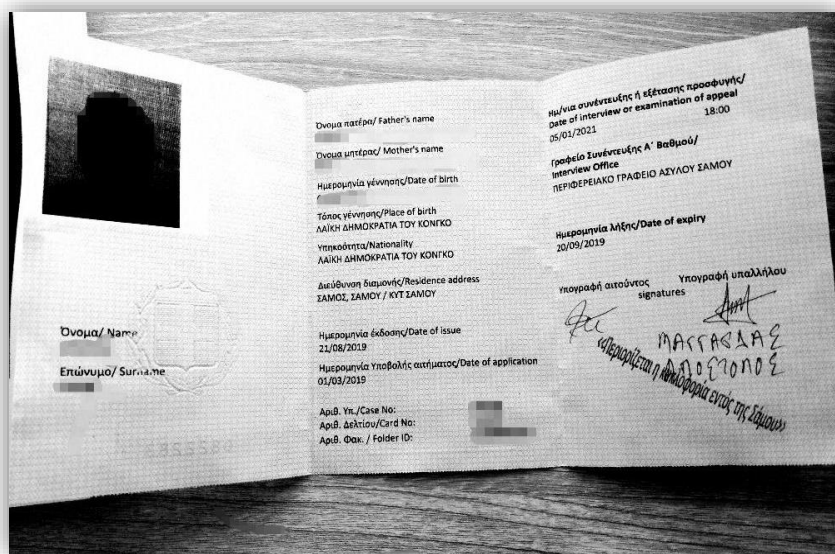 Όνομα/ Name
Επώνυμο/ Surname
Όνομα πατέρα/ Father's name
Όνομα μητέρας/ Mother's name
Ημερομηνία γέννησης/Date of birth
Τόπος γέννησης/Place of birth
ΛΑΪΚΗ ΔΗΜΟΚΡΑΤΙΑ ΤΟΥ ΚΟΝΓΚΟ
Υπηκοότητα/Nationality
ΛΑΪΚΗ ΔΗΜΟΚΡΑΤΙΑ ΤΟΥ ΚΟΝΓΚΟ
Διεύθυνση διαμονής/Residence address
ΣΑΜΟΣ, ΣΑΜΟΥ / ΚΥΤ ΣΑΜΟΥ
Ημερομηνία έκδοσης/Date of issue
21/08/2019
Ημερομηνία Υποβολής αιτήματος/Date of application
01/03/2019
Αριθ. Υπ./Case No:
Αριθ. Δελτίου/Card No:
Αριθ. Φακ. / Folder ID:
Ημ/νια συνέντευξης ή εξέτασης προσφυγής/
Date of interview or examination of appeal
05/01/2021 18:00
Γραφείο Συνέντευξης Α΄ Βαθμού/
Interview Office
ΠΕΡΙΦΕΡΕΙΑΚΟ ΓΡΑΦΕΙΟ ΑΣΥΛΟΥ ΣΑΜΟΥ
Ημερομηνία λήξης/Date of expiry
20/09/2019
Υπογραφή αιτούντος Υπογραφή υπαλλήλου
signatures
«Περιορίζεται η κυκλοφορία εντός της Σάμου»